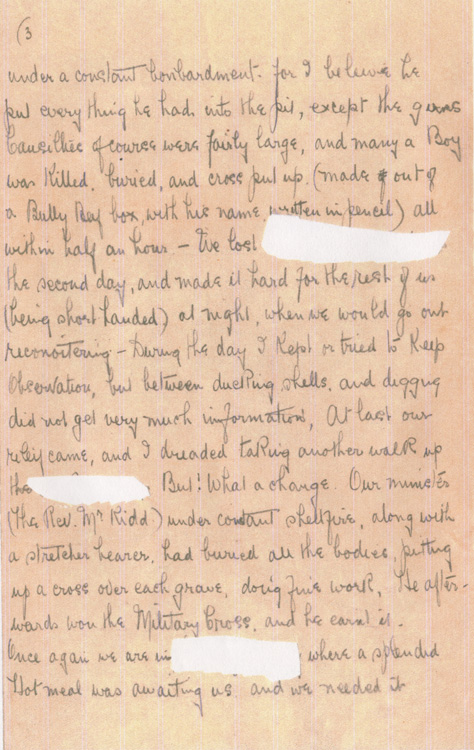 (3
under a constant bombardment. for I beleive he
put everything he had, into the pit, except the guns
Causilties of course were fairly large, and many a Boy
was Killed, buried, and cross put up. (made of out of
a Bully Beef box, with his name, written in pencil) all
within half an hour – We lost
the second day, and made it hard for the rest of us
(being short handed) at night, when we would go out
reconortering – During the day I Kept or tried to Keep
Observation, but between ducking shells, and digging
did not get very much information, At last our
came, and I dreaded taking another walk up
the But! What a change. Our minister
(The Rev. Mr Kidd) under constant shellfire, along with
a stretcher bearer, had buried all the bodies, putting
up a cross over each grave, doing fine work, He after-
wards won the Military Cross, and he earnt it.
Once again we are in , where a splended
Hot meal was awaiting us and we needed it